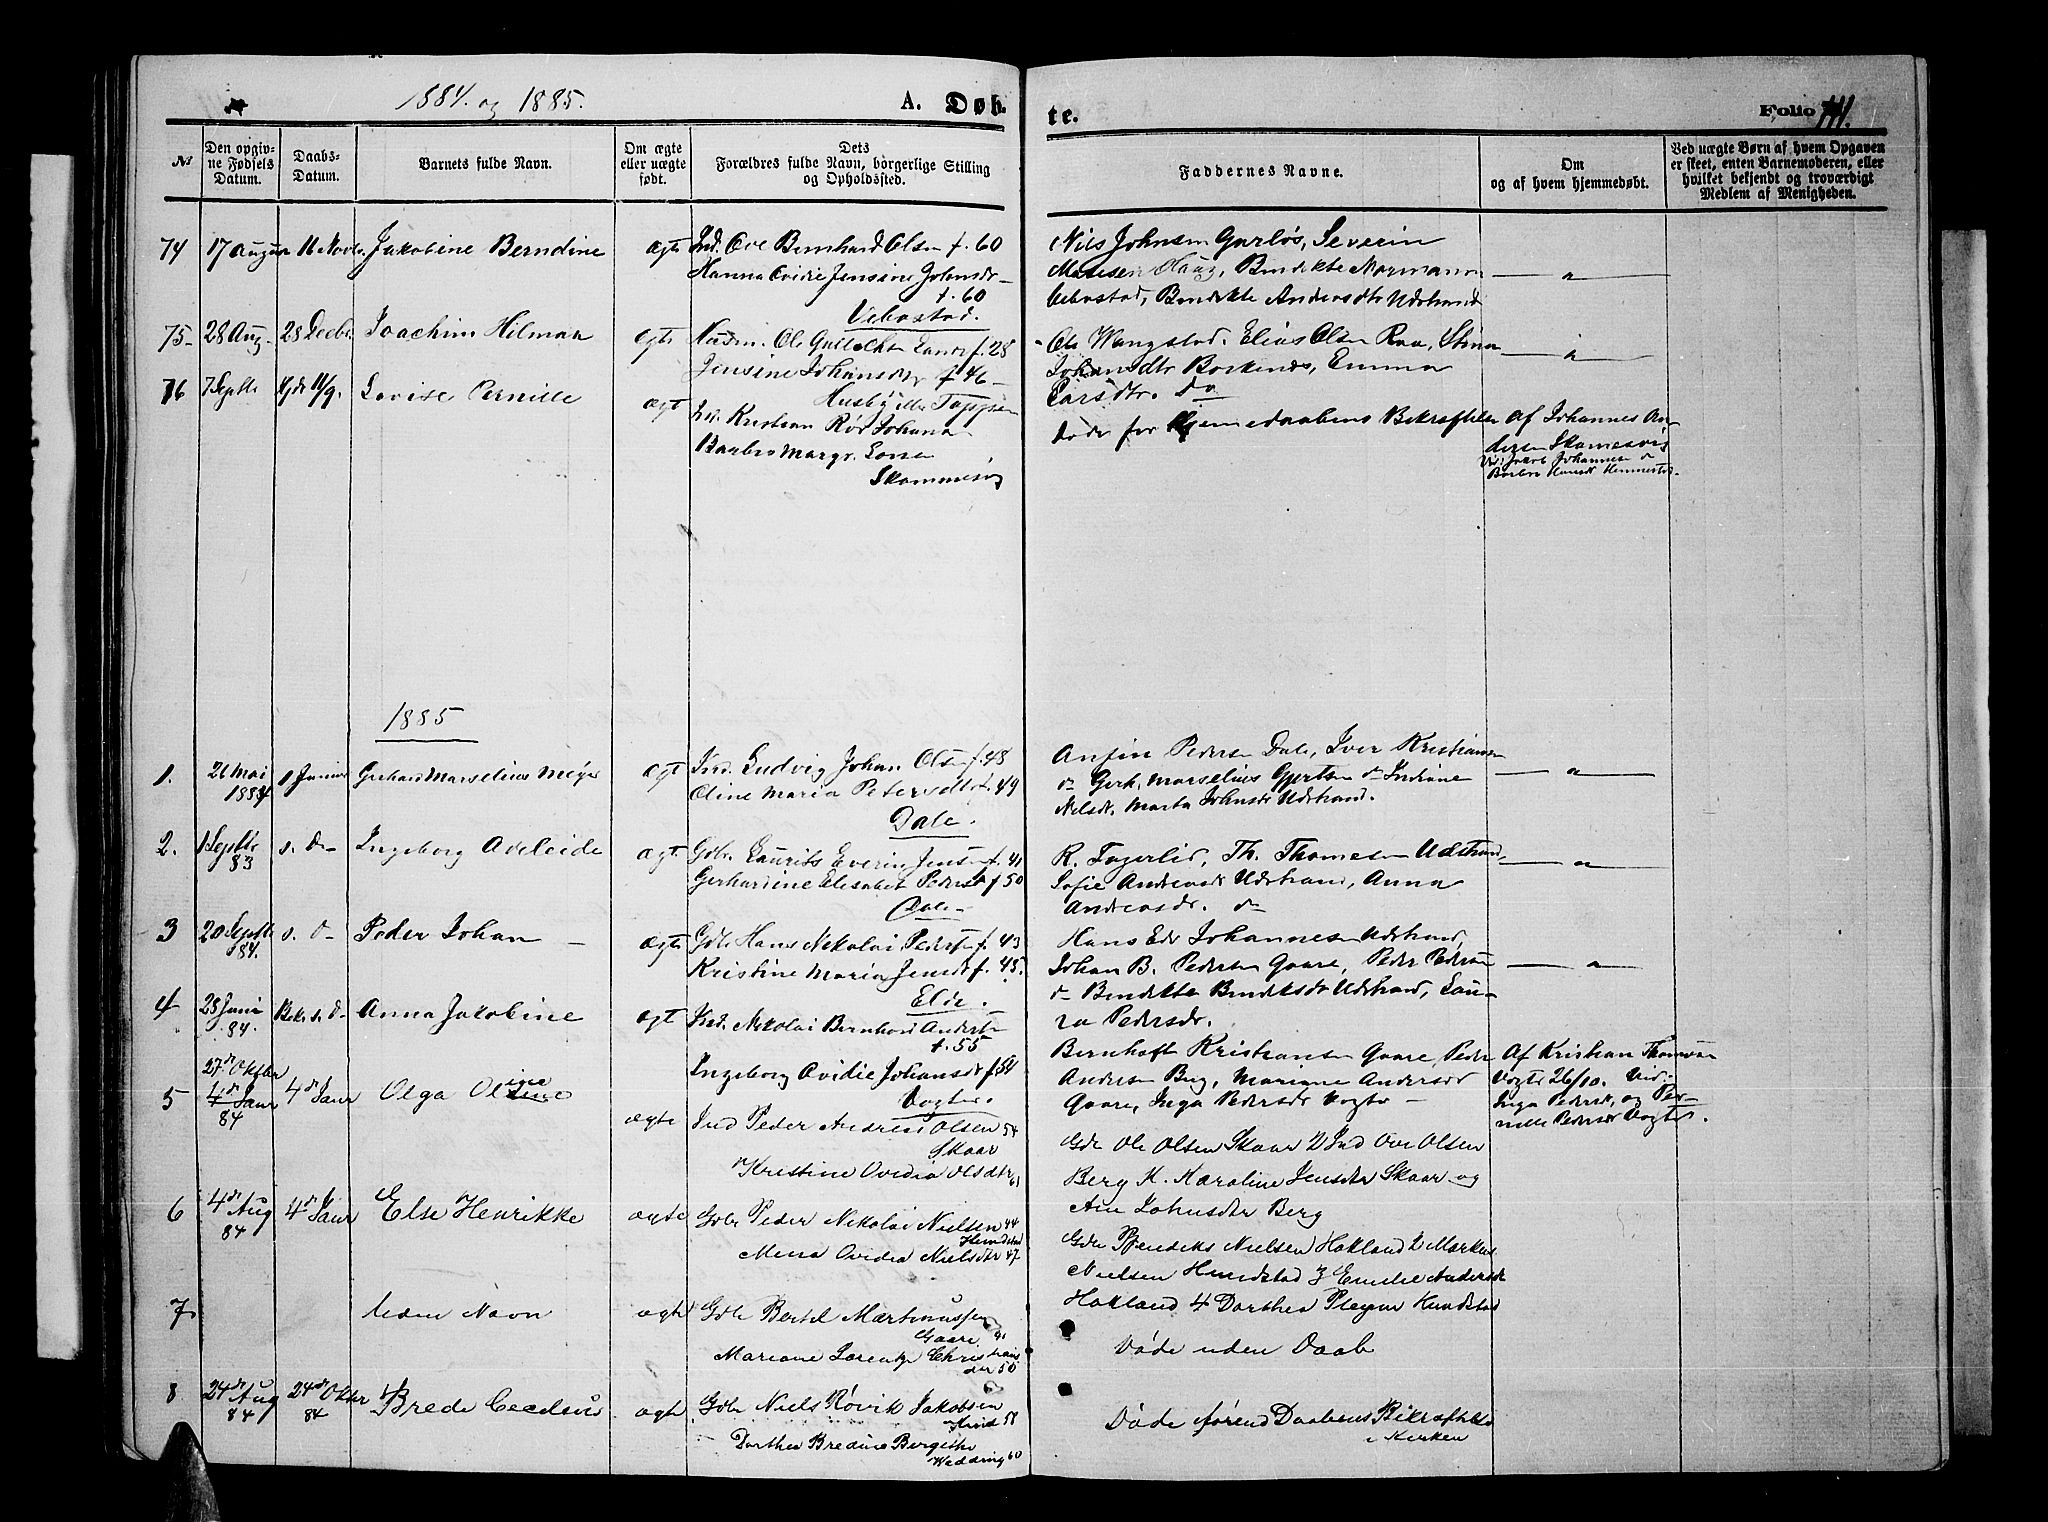 1884. og 1885.
A. Døb-
te.
Folio 111.
№
Den opgiv-
ne Fødsels
Datum.
Daabs-
Datum.
Barnets fulde Navn.
Om ægte
eller uægte
født.
Dets
Forældres fulde Navn, borgerlige Stilling
og Opholdssted.
Faddernes Navne.
Om
og af hvem hjemmedøbt.
Ved uægte Børn af hvem Opgaven
er skeet, enten Barnemoderen, eller
hvilket bekjendt og troværdigt
Medlem af Menigheden.
74 17 August 16 Novbr. Jakobine Berndine ægte Ind. Ove Bernhard Olsen f. 60
Hanna Ovidie Jensine Johansdr
f. 60
Vebostad.
Nils Johnsen Gurløs, Severin
Haug, Bendikte Normann
Vebostad, Bendikte Andersdtr Udstrand
75 28 Aug. 28 Decbr Joachim Hilmar ægte Husm. Ole f. 28
Jensine Johansdtr f. 46
Ole Wangstad, Elias Olsen Raa, Stina
Johansdtr Boskenes, Emma
Larsdtr. do
76 7 Septbr Hjdt 11/9. Lovise Pernille ægt Kristian Johana
Barbro Margr.
Døde før Hjemmedaabens Bekræftelse
Af Johannes An-
dersen
Johannesen
1885
1. 26 Mai
1884 1 Januar Gerhard Marselius Meyer ægt Ind. Ludvig Johan Olsen f. 48
Oline Maria Petersdtr f. 49
Dale.
Pedersen Dale, Iver Kristiansen
do Gerh. Marselius Gjertsen do Indiane
Nilsdtr. Marta Johnsdr Udstrand.
2. 1 Septbr
83 s. D. Ingeborg Adeleide ægt. Gdbr. Laurits Everin Jensen f. 41
Gerhardine Elisabet Pedersdtr f. 50
Dale
R. Fagerlid, Th. Thomesen Udstrand,
Sofie Andreasdr Udstrand, Anna
Andreasdr. do
3 20 Septbr
84. s. D. Peder Johan ægte Gdbr Hans Nikolai Pedersen f. 43
Kristine Maria Jensdtr f. 45.
Elde.
Hans Edv Johannesen Udstrand,
Johan B. Pedersen Gaare, Peder Pedersen
do Bendikte Bendiksdr Udstrand, Lau-
ra Pedersdr.
4 25 Juni
84. Bekr. s. D. Anna Jakobine ægt Ind. Nikolai Bernhard Anders
f. 55
Ingeborg Ovidie Johansdtr f. 54
Vogter.
Bernhoft Kristiansen Gaare, Peder
Andersen Berg, Mariane Andersdr
Gaare, Inga Pedersdr Vogter
Af Kristian Thomesen
Vogter 26/10. Vid.
Inga Pedersdr, og Per-
nille Pedersdr Vogter.
5 27de Oktbr
4de Janr
84 4de Janr Olga Oline ægte Ind Peder Andreas Olsen 54
Skaar
Kristine Ovidia Olsdtr 61
Gdbr Ole Olsen Skaar 2 Ind Ove Olsen
Berg K. Karoline Jensdtr Skaar og
Ane Johnsdtr Berg
6 4de Aug
84 4de Janr Else Henrikke ægte Gdbr Peder Nikolai Nielsen 44
Hemdstad
Mena Ovidia Nielsdtr 47
Gdbr Bendiks Nielsen Hokland 2 Markus
Nielsen Hundstad 3 Emelie Andersdtr
Hokland 4 Dorthea Hundstad
7 Uden Navn ægte Gdbr Bertel Martinussen
Gaare 41
Mariane Lorentze Christians
dtr 50
Døde uden Daab
8 24de Aug
84 24de Oktbr
84 Brede Cecelius ægte Gdbr Niels Røvik Jakobsen
58
Dorthea Bredine Bergithe
Wedding 60
Døde førend Daabens Bekræftelse
i Kirken